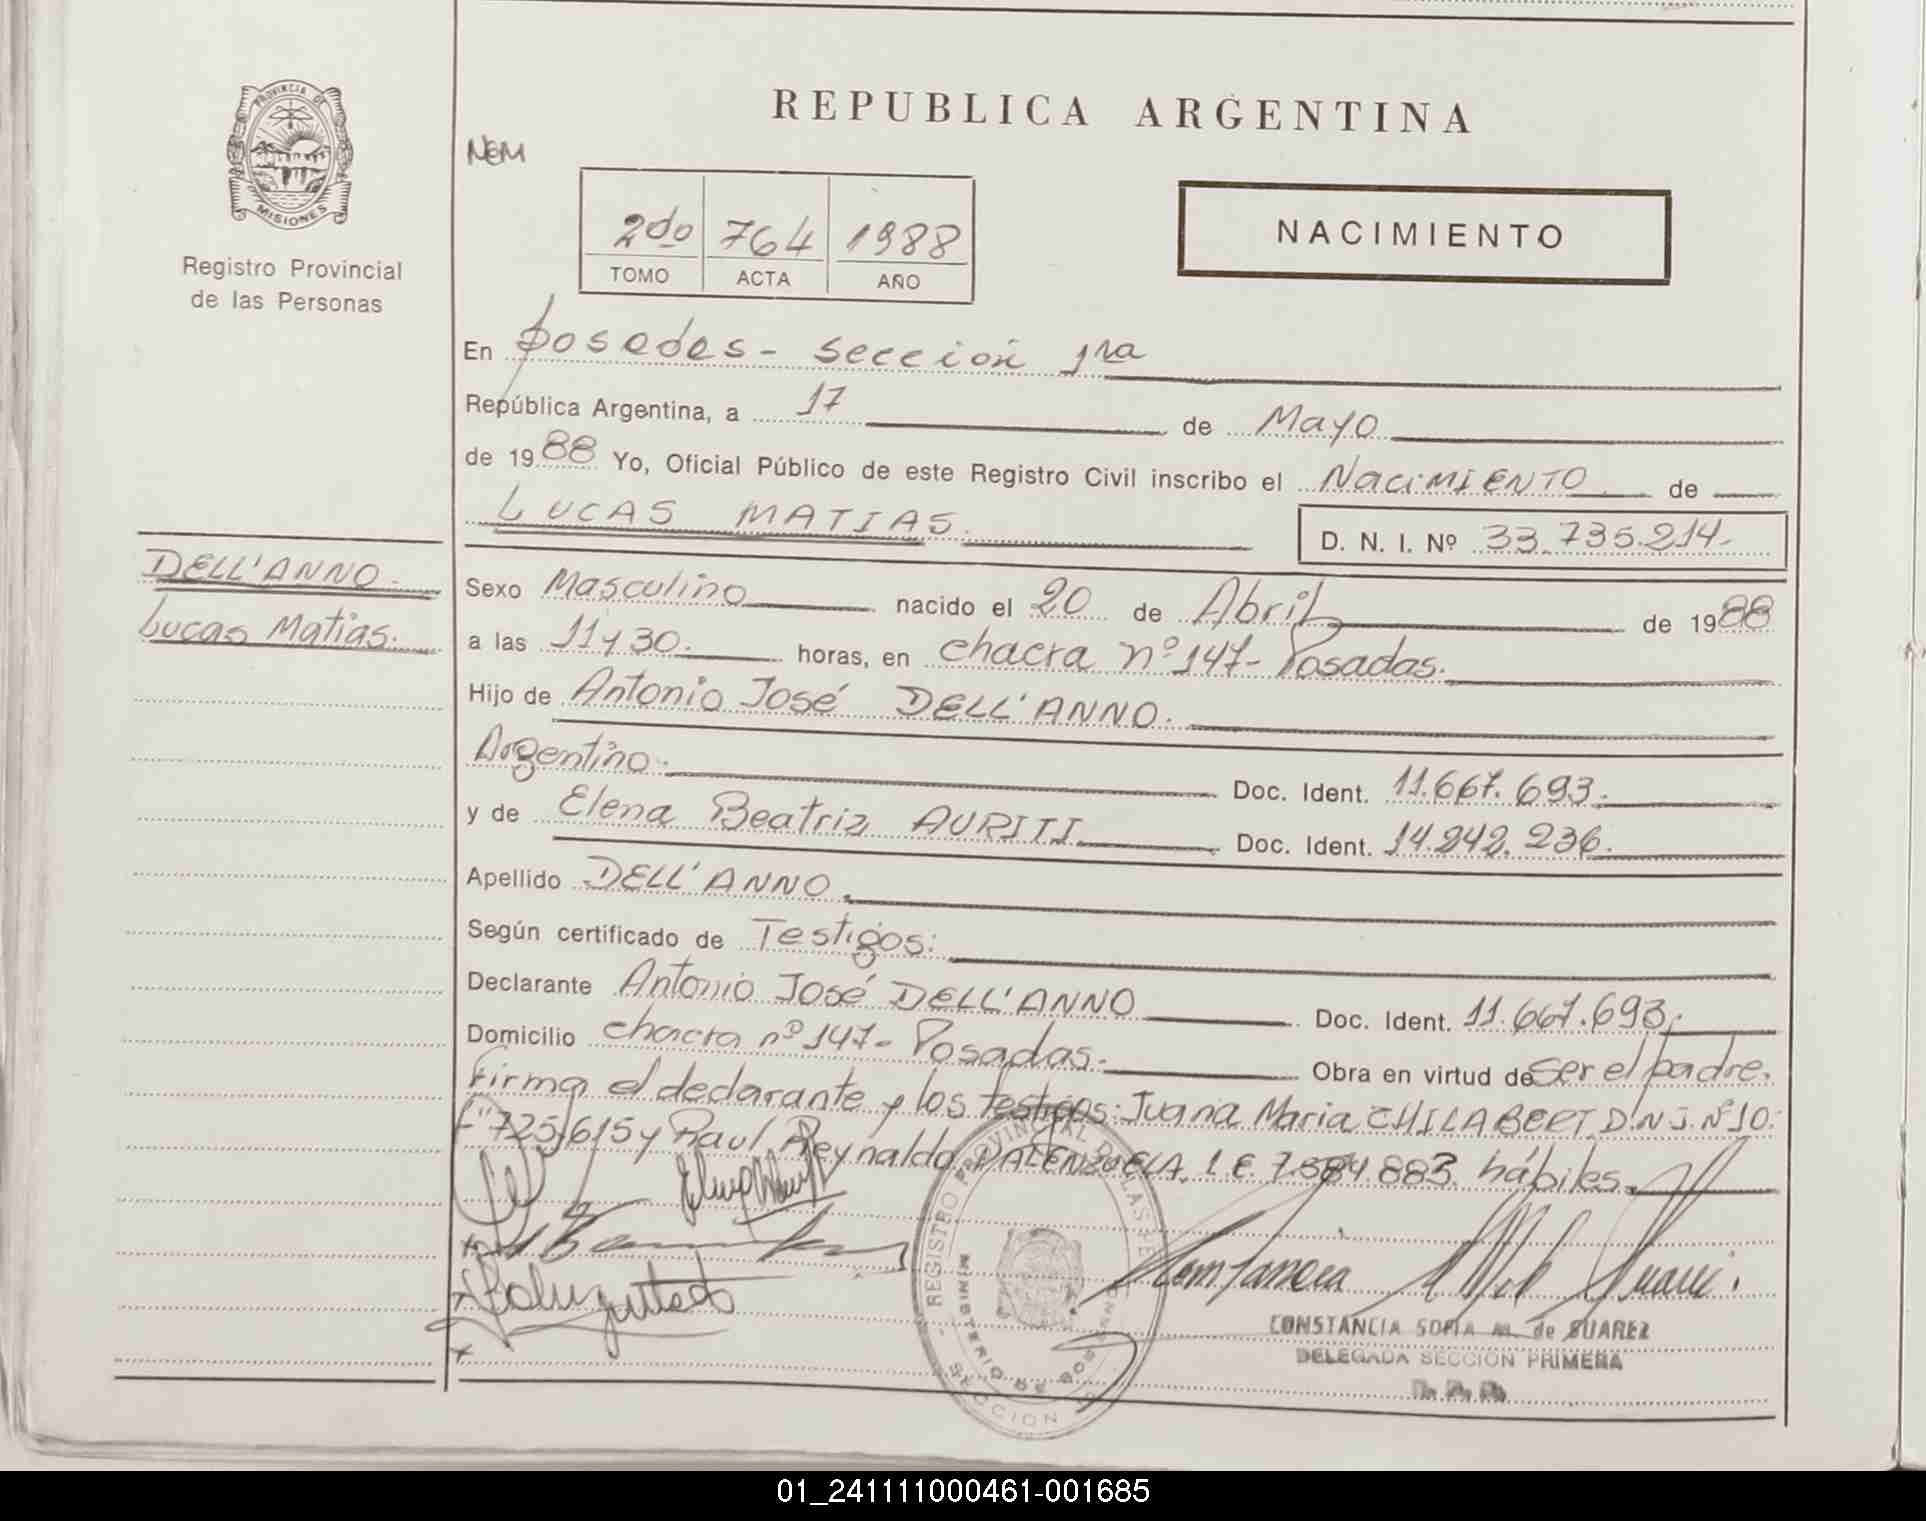 PROVINCIA DE
MISIONES
Registro Provincial
de las Personas
REPUBLICA ARGENTINA
NEM
2do 764 1988
TOMO ACTA AÑO
NACIMIENTO
En Posadas - sección 1ra
República Argentina, a 17 de Mayo
de 1988 Yo, Oficial Público de este Registro Civil inscribo el NaciMIENTO de
LUCAS MATIAS.
D. N. I. Nº 33.735.214.-
DELL'ANNO.
Lucas Matias.
Sexo Masculino nacido el 20 de Abril de 1988
a las 11 y 30. horas, en chacra nº 147- Posadas.
Hijo de Antonio José DELL'ANNO.
Argentino. Doc. Ident. 11.667.693.
y de Elena Beatriz AURITI Doc. Ident. 14.242.236.
Apellido DELL'ANNO.
Según certificado de Testigos:
Declarante Antonio José DELL'ANNO Doc. Ident. 11.667.693.
Domicilio chacra nº 147- Posadas. Obra en virtud de ser el padre.
Firma el declarante y los testigos: Juana Maria CHILABERT D.N.I. Nº 10.
725.615 y Raul Reynaldo L.E. 7.584.883. hábiles.
REGISTRO PROVINCIAL DE LAS PE
MINISTERIO DE GOBIERNO
SECCION
CONSTANCIA SOFIA M. de SUAREZ
DELEGADA SECCION PRIMERA
01_241111000461-001685